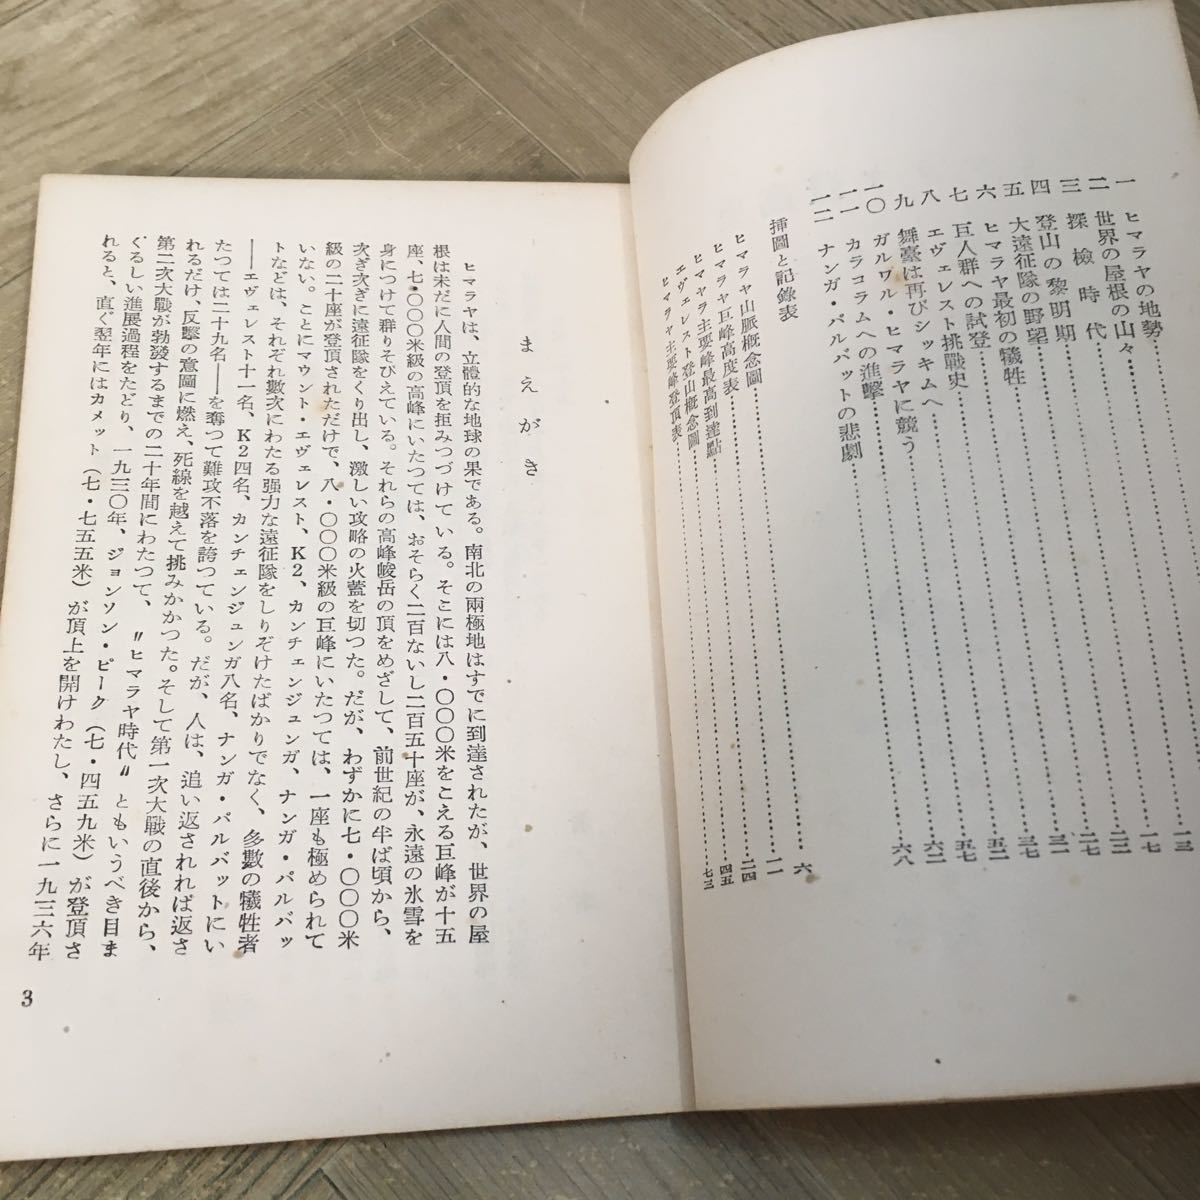 一 ヒマラヤの地勢
二 世界の屋根の山々
三 探檢時代
四 登山の黎明期
五 大遠征隊の野望
六 ヒマラヤ最初の犧牲
七 巨人群への試登
八 エヴェレスト挑戰史……三七
九 舞臺は再びシッキムへ……五二
一〇 ガルワル・ヒマラヤに競う……五七
一一 カラコラムへの進擊……六二
一二 ナンガ・パルバットの悲劇……六八
揷圖と記錄表
ヒマラヤ山脈概念圖……六
ヒマラヤ巨峰高度表……一一
ヒマヤラ主要峰最高到達點……二四
エヴェレスト登山概念圖……四五
ヒマラヤ主要峰登頂表……七三
まえがき
ヒマラヤは、立體的な地球の果である。南北の兩極地はすでに到達されたが、世界の屋
根は未だに人間の登頂を拒みつづけている。そこには八・〇〇〇米をこえる巨峰が十五
座、七・〇〇〇米級の高峰にいたつては、おそらく二百ないし二百五十座が、永遠の氷雪を
身につけて群りそびえている。それらの高峰峻岳の頂をめざして、前世紀の半ば頃から、
次ぎ次ぎに遠征隊をくり出し、激しい攻略の火蓋を切つた。だが、わずかに七・〇〇〇米
級の二十座が登頂されただけで、八・〇〇〇米級の巨峰にいたつては、一座も極められて
いない。ことにマウント・エヴェレスト、K2、カンチェンジュンガ、ナンガ・パルバッ
トなどは、それぞれ數次にわたる强力な遠征隊をしりぞけたばかりでなく、多數の犧牲者
――エヴェレスト十一名、K2四名、カンチェンジュンガ八名、ナンガ・パルバットにい
たつては二十九名――を奪つて難攻不落を誇つている。だが、人は、追い返されれば返さ
れるだけ、反擊の意圖に燃え、死線を越えて挑みかかつた。そして第一次大戰の直後から、
第二次大戰が勃發するまでの二十年間にわたつて、〝ヒマラヤ時代〟ともいうべき目ま
ぐるしい進展過程をたどり、一九三〇年、ジョンソン・ピーク（七・四五九米）が登頂さ
れると、直ぐ翌年にはカメット（七・七五五米）が頂上を開けわたし、さらに一九三六年
3